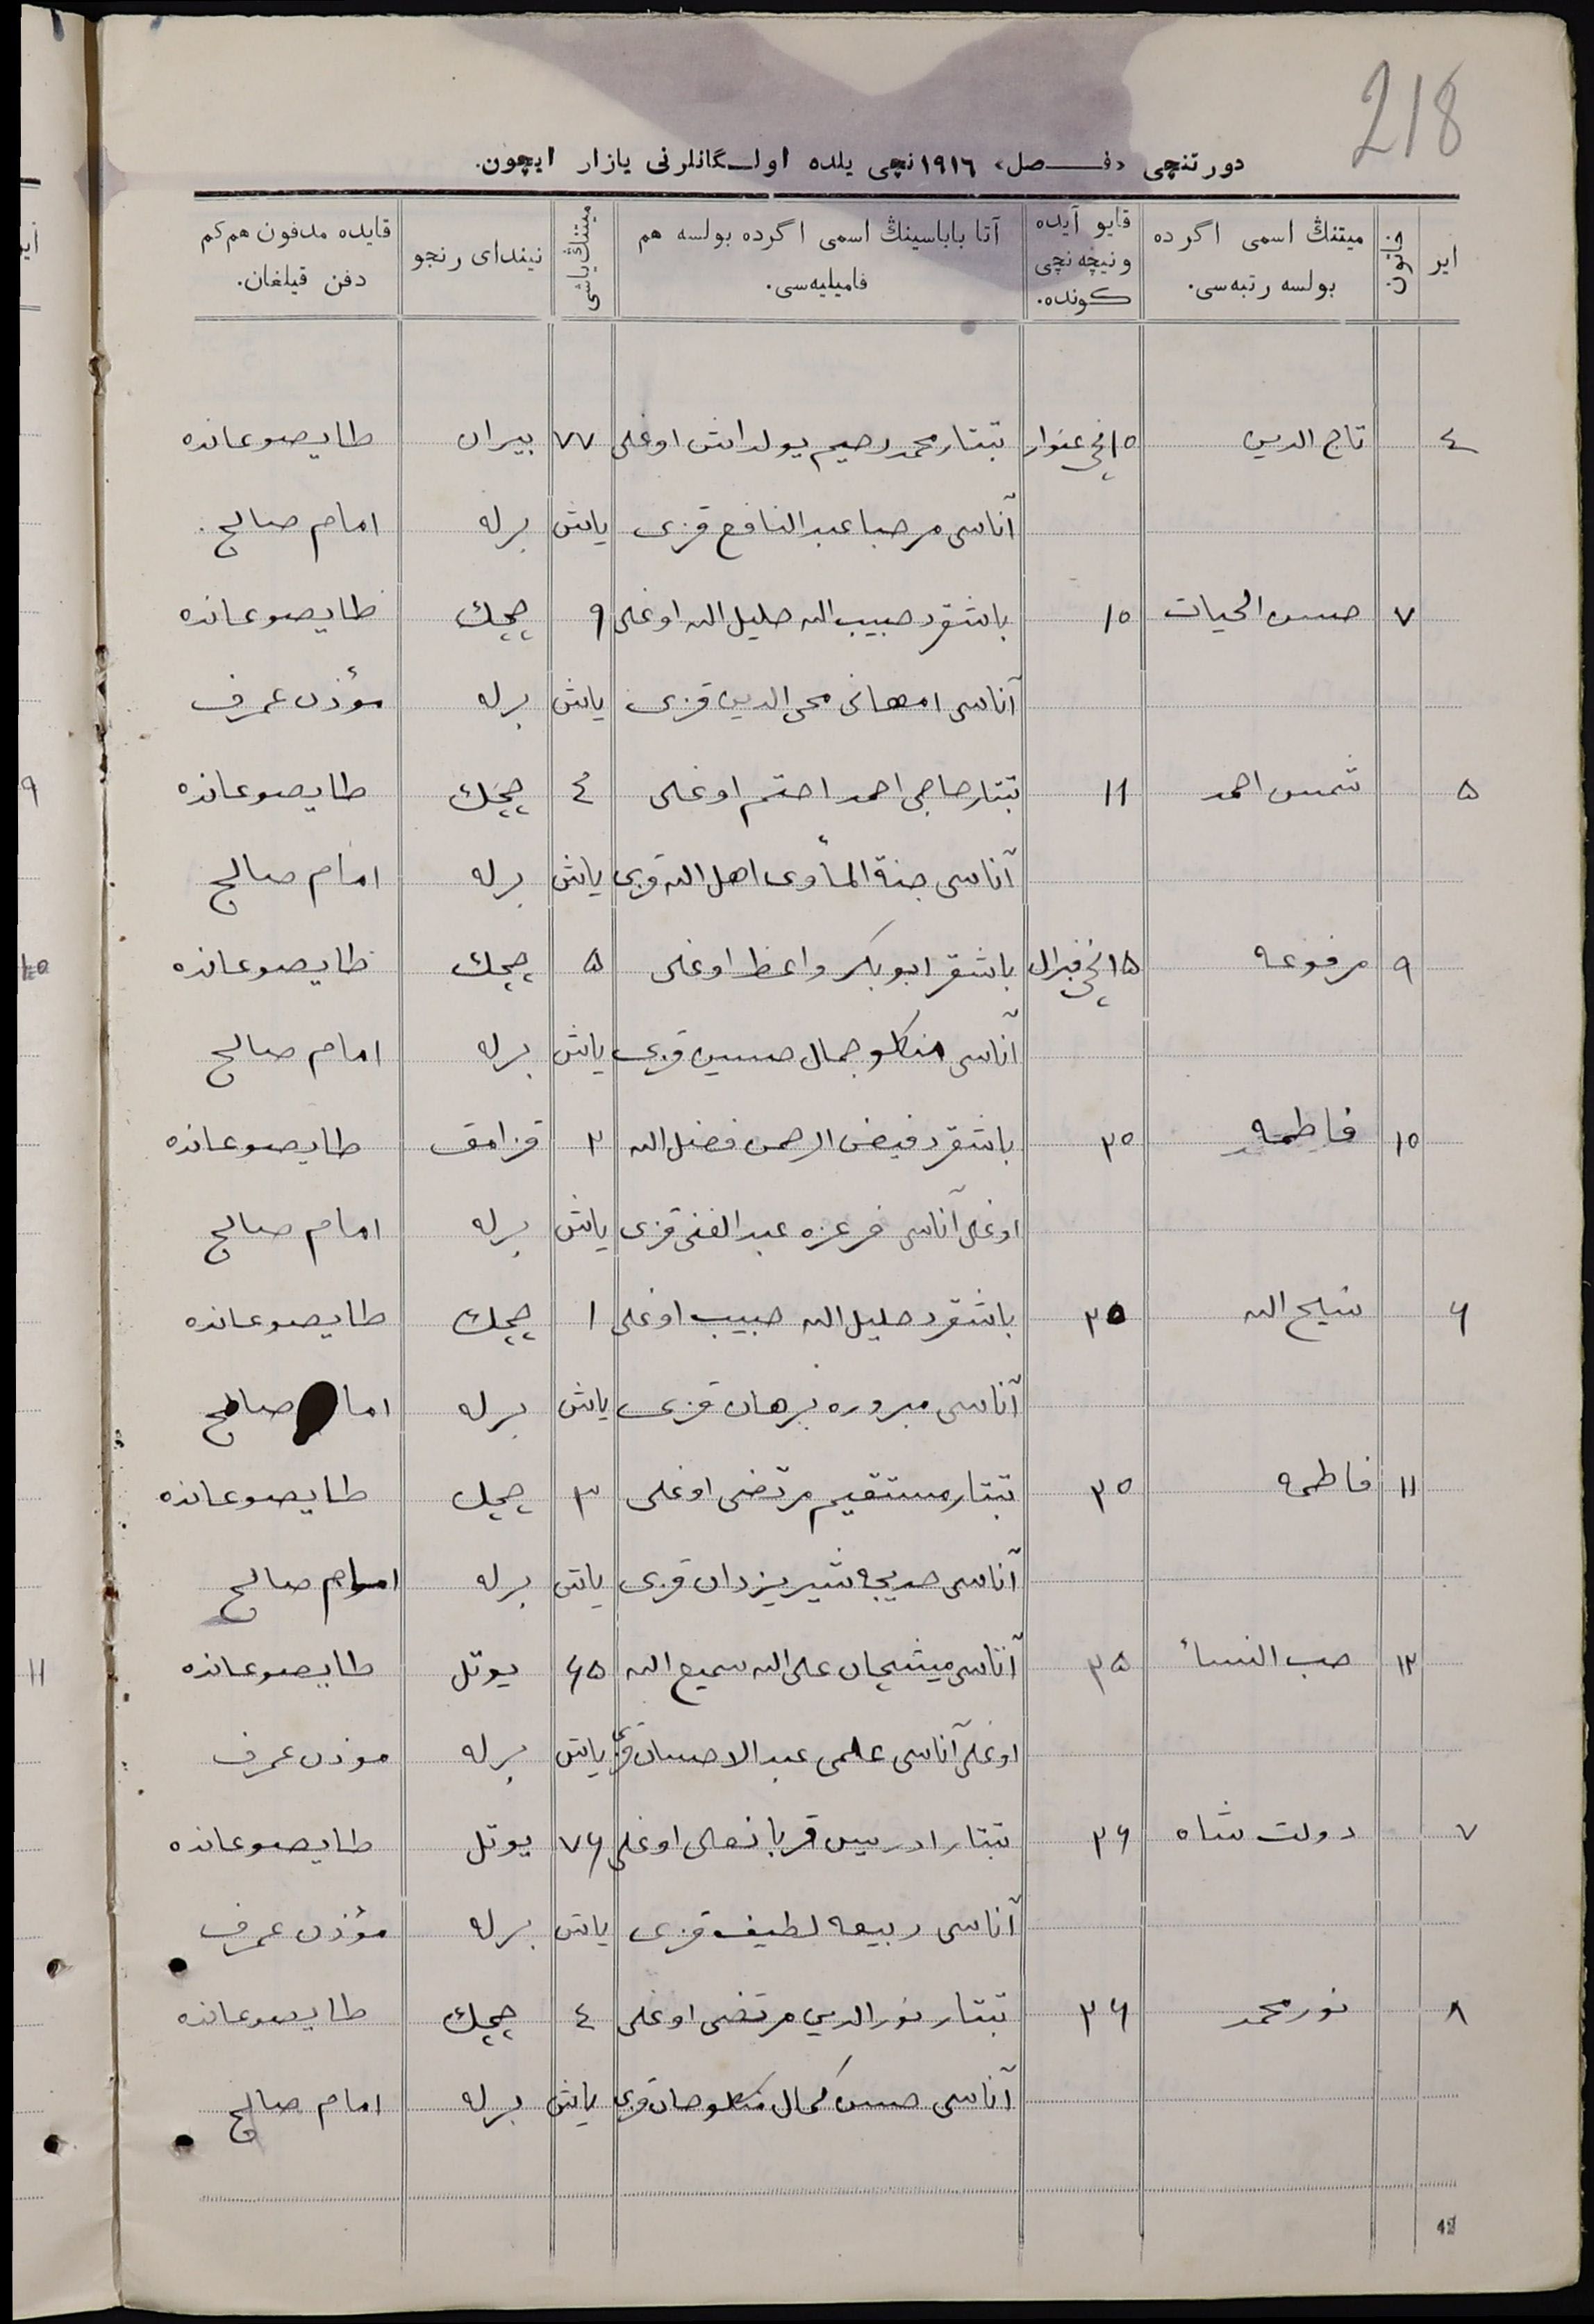 218
دورتنچی «فـصل» ١٩١٦نچی یلده اولـگانلرنی یازار ایچون.
ایر
خاتون
میتنڭ اسمی اگرده بولسه رتبه‌سی.
قایو آیده ونیچه‌نچی کونده.
آتا باباسینڭ اسمی اگرده بولسه هم فامیلیه‌سی.
میتنڭ یاشی
نیندای رنجو
قایده مدفون هم کم دفن قیلغان.
٤ تاج الدین ١٥نچی غنوار تبتار محمدرحیم یولداش اوغلی ٧٧ بیران طایصوغانده
آناسی مرحبا عبدالنافع قزی یاش برله امام صالح
٧ حسن الحیات ١٥ باشقرد حبیب الله خلیل الله اوغلی ٩ چچك طایصوغانده
آناسی امهانی محی الدین قزی یاش برله مؤذن عمرف
٥ شمس احمد ١١ تبتار حاجی احمد احتم اوغلی ٤ چچك طایصوغانده
آناسی جنة المأوی اهل الله قزی یاش برله امام صالح
٩ مرفوعه ١٥نچی فبرال باشقر ابوبکر واعظ اوغلی ٥ چچك طایصوغانده
آناسی منکلوجمال حسین قزی یاش برله امام صالح
١٥ فاطمه ٢٥ باشقرد فیض الرحمن فضل الله ٢ قزامق طایصوغانده
اوغلی آناسی عبدالغنی قزی یاش برله امام صالح
۶ شیخ الله ٢٥ باشقرد خلیل الله حبیب اوغلی ١ چچك طایصوغانده
آناسی مبروره برهان قزی یاش برله امام صالح
١١ فاطمه ٢٥ تبتار مستقیم مرتضی اوغلی ٣ چچك طایصوغانده
آناسی خدیجه شیریزدان قزی یاش برله امام صالح
١٢ حب النساء ٢٥ آتاسی علی الله سمیع الله ۶٥ یوتل طایصوغانده
اوغلی آناسی علمی عبدالاحسان قزی یاش برله موذن عمرف
٧ دولت شاه ٢۶ تبتار ادریس قربانعلی اوغلی ٧۶ یوتل طایصوغانده
آناسی ربیعه لطیف قزی یاش برله مؤذن عمرف
٨ نورمحمد ٢۶ تبتار نورالدین مرتضی اوغلی ٤ چچك طایصوغانده
آناسی حسن کمال منکلوجان قزی یاش برله امام صالح
42
٩
١٥
١١